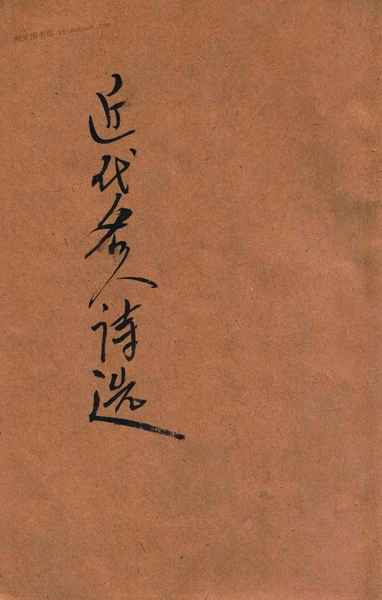 近代名人诗选